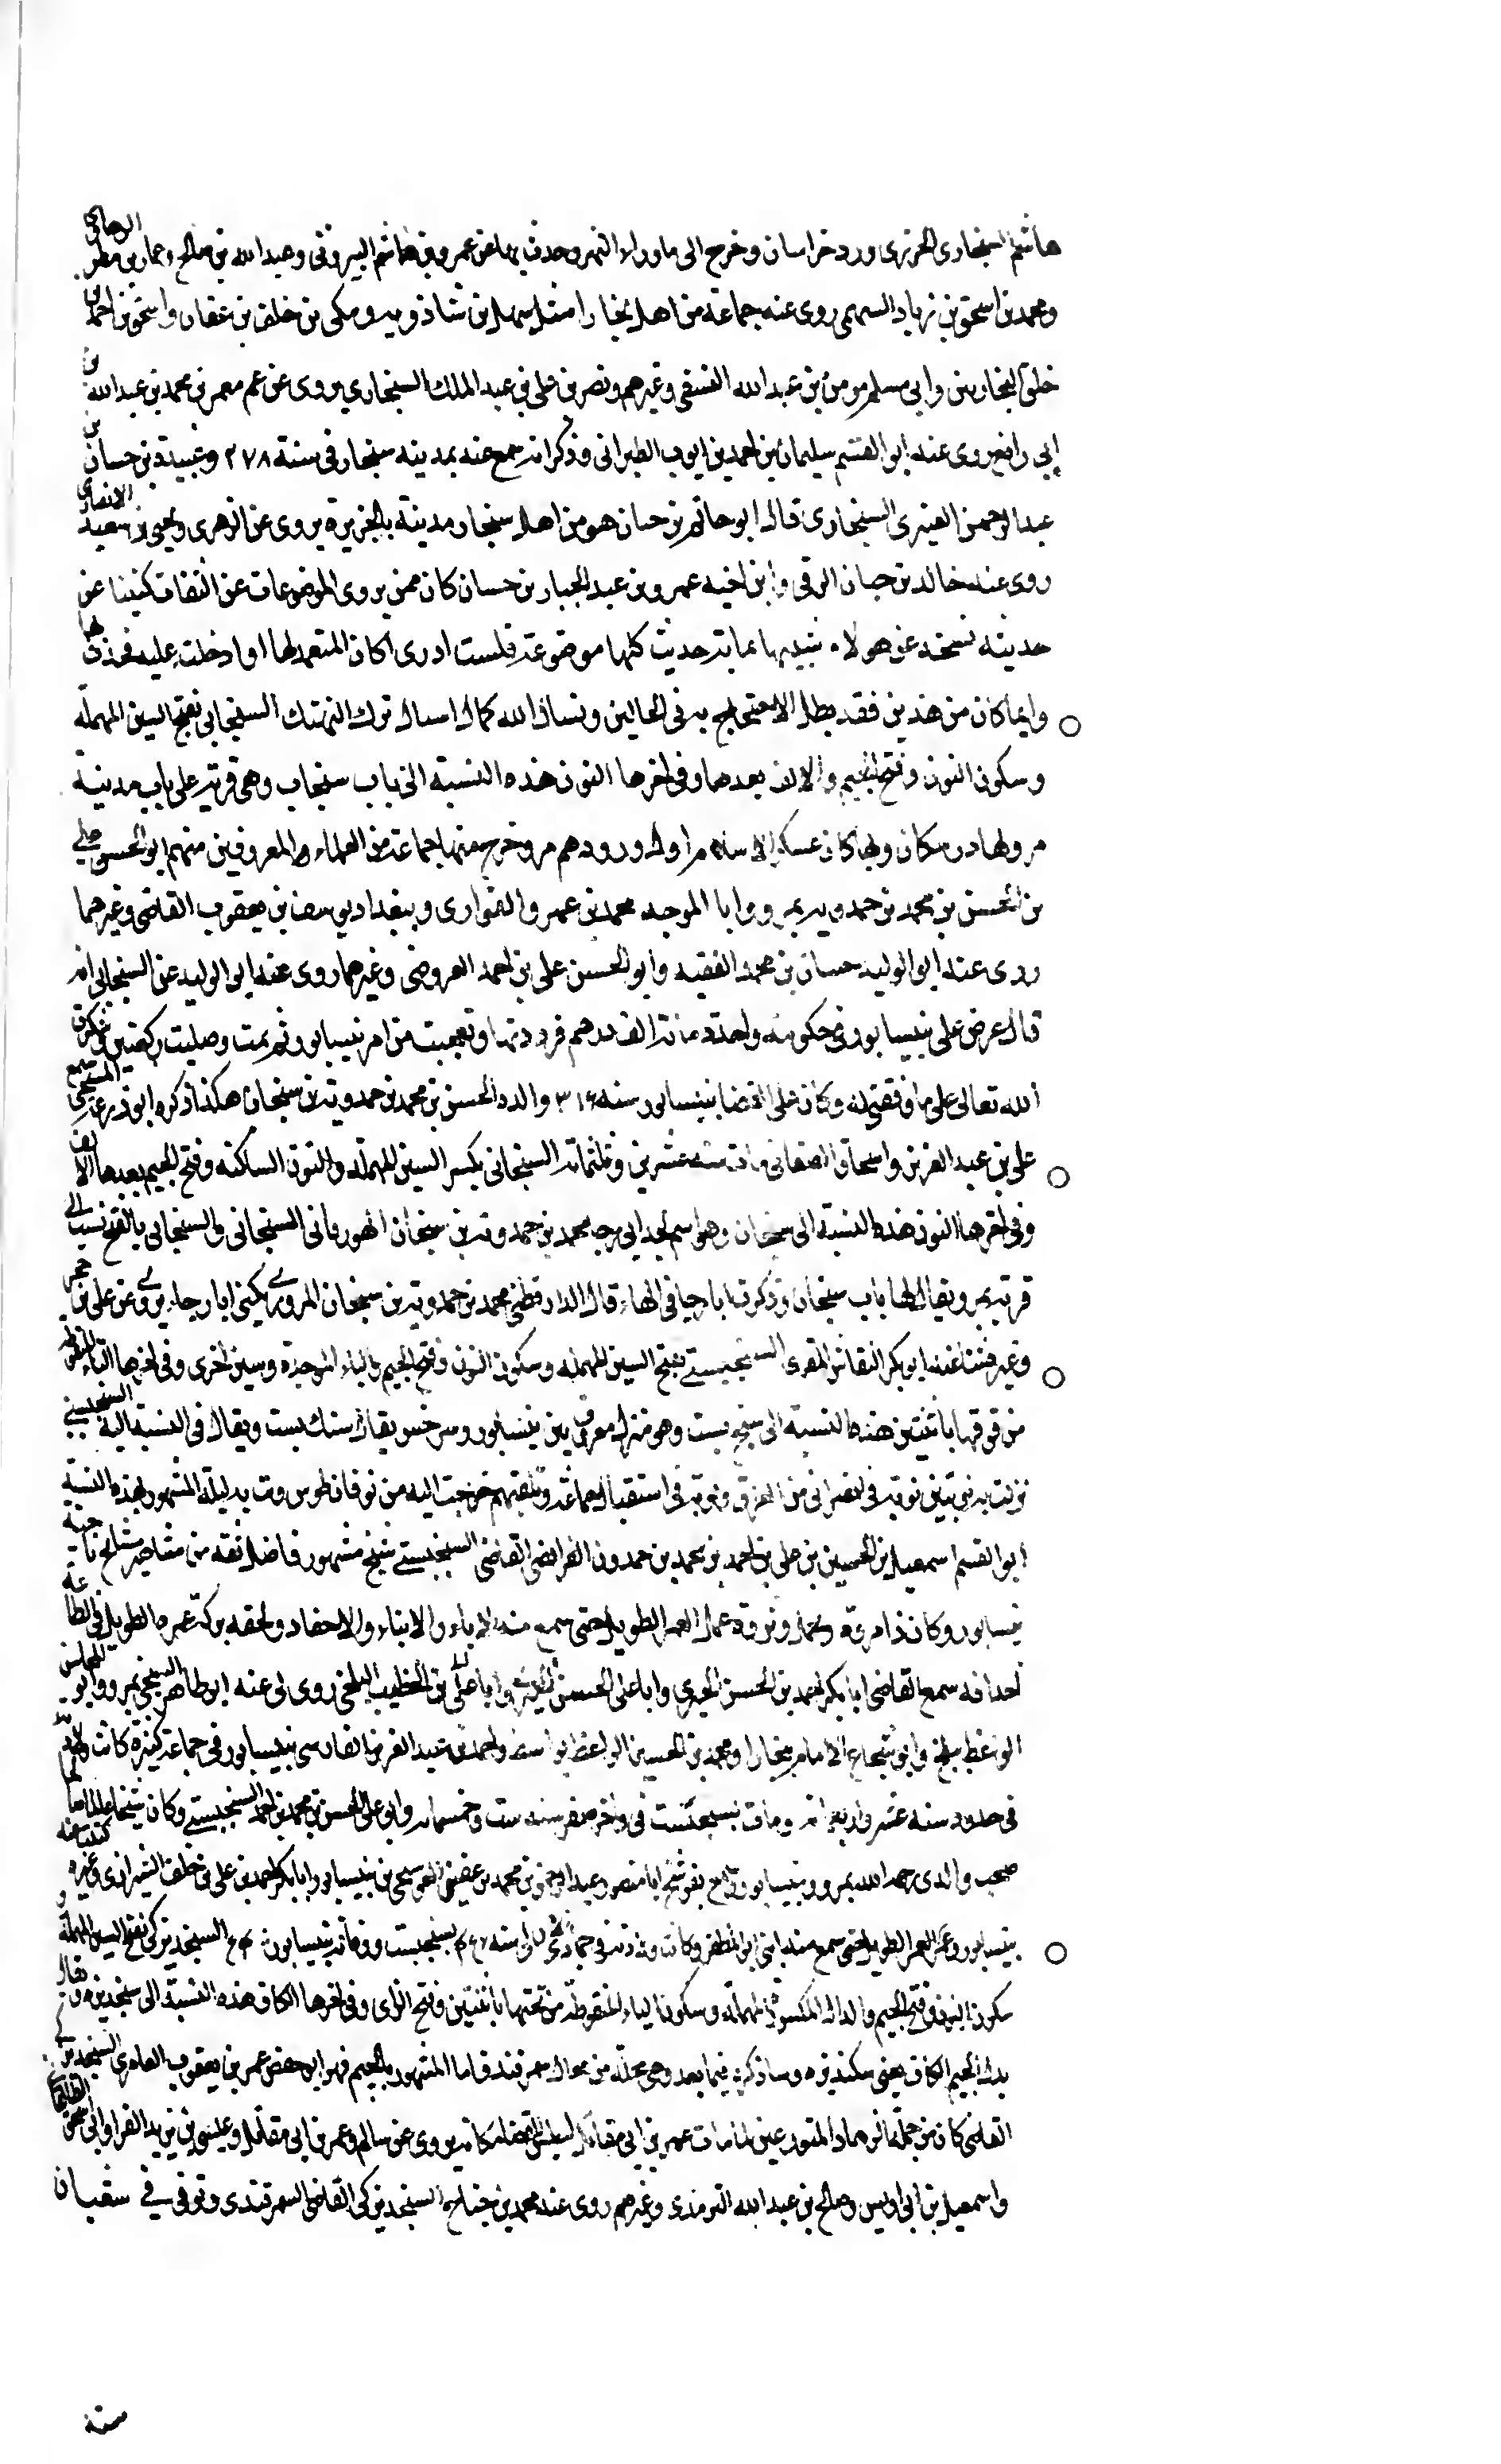 هاشم السنجاري الجزري ورد خراسان وخرج الى ماوراء النهر وحدث بها عن عمرو بن هاشم البيروتي وعبد الله بن صالح وعمار بن مطر الرهاوي
ومحمد بن اسحق بن زياد السهمي روى عنه جماعة من اهل بخارا مثل سهل بن شاذويه ومكي بن خلف بن عفان واسحق بن احمد بن
خلف البخاريين وابي مسلم مومن بن عبد الله النسفي وغيرهم ونصر بن علي بن عبد الملك السنجاري يروي عن عم معمر بن محمد بن عبد الله بن
ابي رافع روى عنه ابو القسم سليمان بن احمد بن ايوب الطبراني وذكر انه سمع عنه بمدينة سنجار في سنة ٢٧٨ وعبيدة بن حسان بن
عبد الرحمن العنبري السنجاري قال ابو حاتم بن حبان هو من اهل سنجار مدينة بالجزيرة يروي عن الزهري ويحيى بن سعيد الانصاري
روى عنه خالد بن حبان الرقي وابن اخيه عمرو بن عبد الجبار بن حسان كان ممن يروي الموضوعات عن الثقات كتبنا عن
حديثه نسخة عن هولاء بماية حديث كلها موضوعة فلست ادري اكان المتعمد لها او ادخلت عليه فحدث بها
وايما كان من هذين فقد بطل الاحتجاج به في الحالين ونسال الله كمال اسبال ترك التهتك السنجاني بفتح السين المهملة
وسكون النون وفتح الجيم والالف بعدها وفي اخرها النون هذه النسبة الى باب سنجان وهي قرية على باب مدينة
مرو لها درسكان وبها كان عسكر الاسلام اول ورودهم مرو خرج منها جماعة من العلماء والمعروفين منهم ابو الحسن علي
بن الحسن بن محمد بن حمدويه بمرو ابا الموجه محمد بن عمرو الفزاري وببغداد يوسف بن يعقوب القاضي وغيرهما
روى عنه ابو الوليد حسان بن محمد الفقيه وابو الحسن علي بن احمد العروضي وغيرهما روى عنه ابو الوليد عن السنجاني انه
قال عرض علي بنيسابور في حكومة واحدة ماية الف درهم فرددتها وتعجبت من امر نيسابور ثم نمت وصليت ركعتين شكرت
الله تعالى على ما وفقني له وكان على القضا بنيسابور سنة ٣١٦ والده الحسن بن محمد بن حمدويه بن سنجان هكذا ذكره ابو زرعة السنجي سمع
علي بن عبد العزيز واسحاق الصنعاني مات سنة عشرين وثلثماية السنجاني بكسر السين المهملة والنون الساكنة وفتح الجيم بعدها الالف
وفي اخرها النون هذه النسبة الى سنجان وهو اسم لجد ابي رجا محمد بن حمدويه بن سنجان الهورقاني السنجاني والسنجاني بالفتح نسب الى
قرية بمرو يقال لها باب سنجان وذكرت ابا رجا في الهاء قال الدارقطني محمد بن حمدويه بن سنجان المروزي يكنى ابا رجاء يروي عن علي بن حجر
وغيره حدثنا عنه ابو بكر النقاش المقري السنجبستي بفتح السين المهملة وسكون النون وفتح الجيم والباء الموحدة وسين اخرى وفي اخرها التاء المنقوطة
من فوقها باثنتين هذه النسبة الى سنج بست وهو منزل معروف بين نيسابور وسرخس يقال سنك بست ويقال في النسبة اليه السنجبستي
نزلت به نوبتين نوبة في انصرافي من العراق ونوبة في استقبال جماعة وتلقيهم خرجت اليه من نوقان طوس وبت به ليلة المشهور بهذه النسبة
ابو القسم اسمعيل بن الحسين بن علي بن احمد بن محمد بن حمدون الفرايضي القاضي السنجبستي شيخ مشهور فاضل ثقة من مشاهير مشايخ ناحية
نيسابور وكان ذا مروة وثروة عمر العمر الطويل حتى سمع منه الاباء والابناء والاحفاد ولحقه بركة عمره الطويل في الطاعة
احفاده سمع القاضي ابا بكر احمد بن الحسن الحيري وابا علي الحسن البلخي روى لي عنه ابو طاهر السنجي بمرو وابو
الواعظ ببلخ وابو شجاع الامام ببخارا ومحمد بن الحسين الواعظ واحمد بن عبد العزيز بنيسابور في جماعة كثيرة كانت ولادته
في حدود سنة عشر واربعماية ومات بسنجبست في اخر صفر سنة ست وخمسماية وابو علي الحسن بن محمد بن احمد السنجبستي وكان شيخا عالما
صحب والدي رحمه الله بمرو ونيسابور وسمع ابا منصور عبد الرحمن بن محمد بن عفيف البوسنجي بنيسابور وابا بكر احمد بن علي بن خلف الشيرازي وغيره
بنيسابور وعمر العمر الطويل حتى سمع منه ابني ابو المظفر وكانت ولادته في جمادى بسنجبست ووفاته بنيسابور السنجديزكي بفتح السين المهملة
سكون النون وفتح الجيم والدال المكسورة المهملة وسكون الياء المنقوطة من تحتها باثنتين وفتح الزاي وفي اخرها الكاف هذه النسبة الى سنجديزه ويقال
بدل الجيم الكاف يعني سنكديزه وساذكره فيما بعد وهي محلة من محال سمرقند فاما المشهور بالجيم فهو ابو حفص عمر بن يعقوب العامري السنجديزكي
القاضي كان من جملة الزهاد المتورعين لما مات عمر بن ابي مقاتل يروي عن سالم وعمر بن ابي مقاتل وعيسى بن يزيد الفراوي
واسمعيل بن ابي اويس وصالح بن عبد الله الترمذي وغيرهم روى عنه محمد بن جناح السنجديزكي القاضي السمرقندي وتوفي في شعبان
سنة